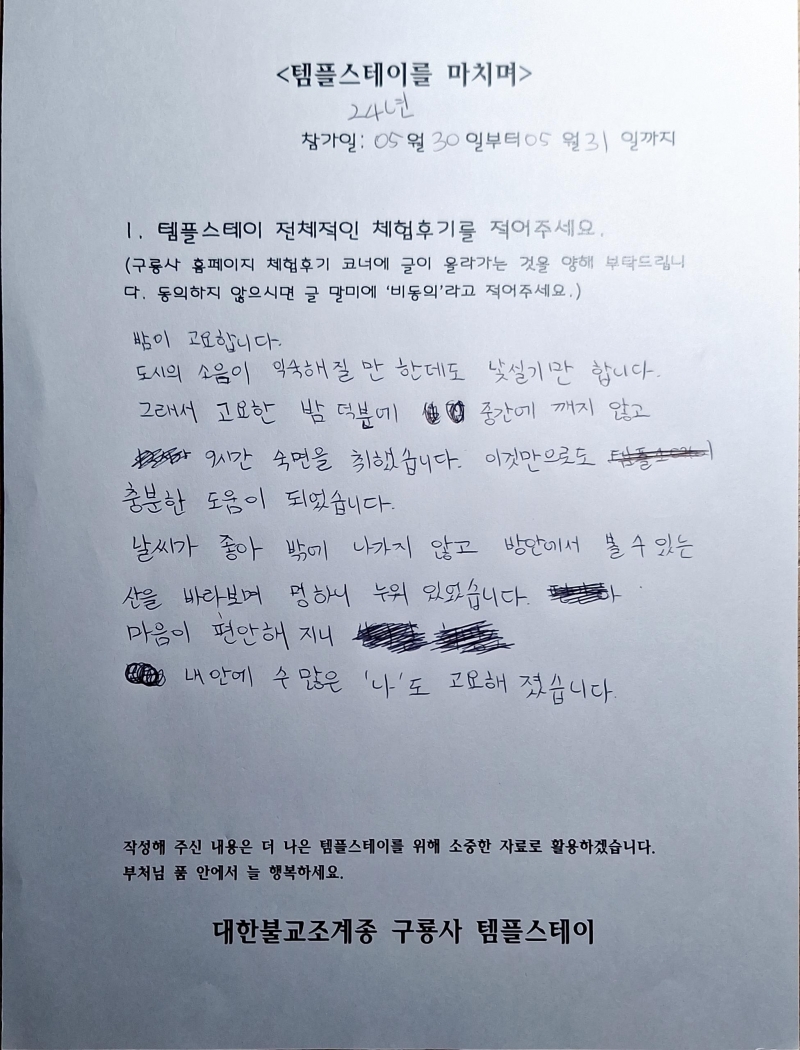 <템플스테이를 마치며>
24년
참가일: 05월 30일부터 05월 31일까지
1. 템플스테이 전체적인 체험후기를 적어주세요.
(구룡사 홈페이지 체험후기 코너에 글이 올라가는 것을 양해 부탁드립니
다. 동의하지 않으시면 글 말미에 '비동의'라고 적어주세요.)
밤이 고요합니다.
도시의 소음이 익숙해질 만 한데도 낯설기만 합니다.
그래서 고요한 밤 덕분에 중간에 깨지 않고
9시간 숙면을 취했습니다. 이것만으로도
충분한 도움이 되었습니다.
날씨가 좋아 밖에 나가지 않고 방안에서 볼 수 있는
산을 바라보며 멍하니 누워 있었습니다.
마음이 편안해 지니
내 안에 수 많은 '나'도 고요해 졌습니다.
작성해 주신 내용은 더 나은 템플스테이를 위해 소중한 자료로 활용하겠습니다.
부처님 품 안에서 늘 행복하세요.
대한불교조계종 구룡사 템플스테이